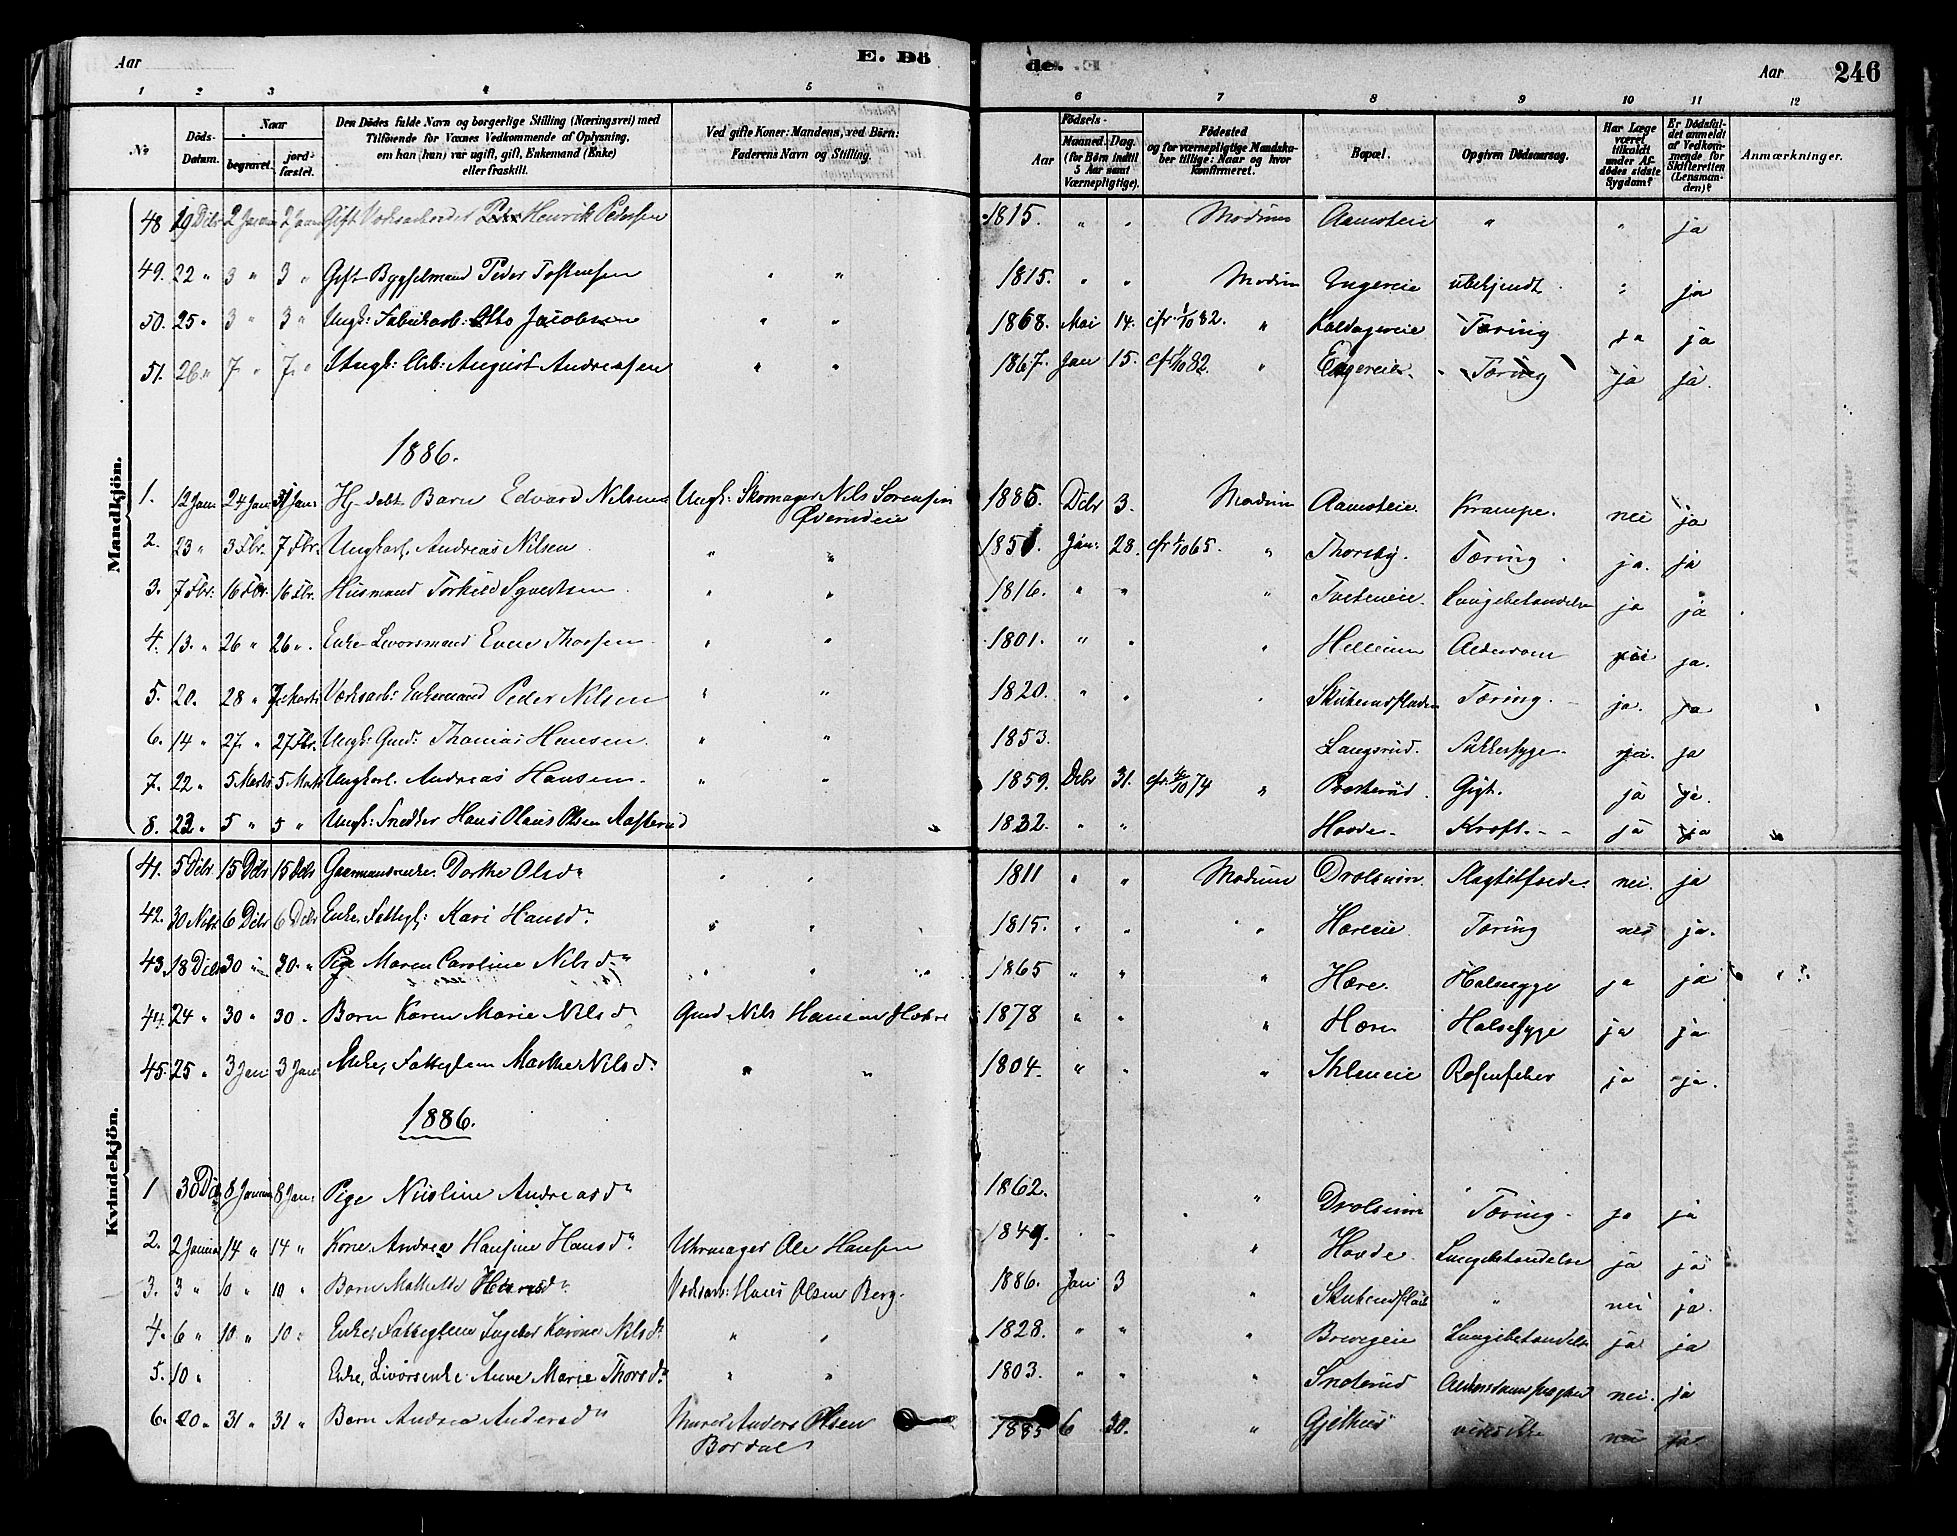 Aar E. Dö de. Aar 246
1 2 3 4 5 6 7 8 9 10 11 12
No
Döds-Datum.
Naar
begravet.
jordfæstet.
Den Dödes fulde Navn og borgerlige Stilling (Næringsvei) med
Tilföiende for Voxnes Vedkommende af Oplysning,
om han (hun) var ugift, gift, Enkemand (Enke)
eller fraskilt.
Ved gifte Koner: Mandens, ved Börn:
Faderens Navn og Stilling.
Födsels-
Aar
Maaned. Dag.
(for Börn indtil
5 Aar samt
Værnepligtige).
Födested
og for værnepligtige Mandskaber tillige: Naar og hvor
konfirmeret.
Bopæl.
Opgiven Dödsaarsag.
Har Læge
været
tilkaldt
under Afdödes sidste
Sygdom?
Er Dödsfaldet anmeldt
af Vedkommende for
Skifteretten
(Lensmanden)?
Anmærkninger.
Mandkjön.
48. 19 Dcbr 2 Januar 2 Januar Gift Værksarbeider Henrik Pedersen 1815. " " Modum Aamoteie " " ja
49. 22 " 3 " 3 " Gift Bygselmand Peder Tostensen " " 1815. " " Modum Ungereie ubekjendt " ja
50. 25 " 3 " 3 " Ungk: Fabrikarb: Otto Jacobsen " " 1868. Mai 14. cfr 1/10 82. " Kaldagereie Tæring ja ja
51. 26 " 7 " 7 " Ungk: Arb: August Andreasen " " 1867. Jan 15. cfr 1/10 82 " Tæring ja ja.
1886.
1. 12 Jan 24 Jan 31 Jan Hj. debt Barn Edvard Nilsen Ungk: Skomager Nils Sørensen
1885 Dcbr 3. Modum Aamoteie Krampe. nei ja
2. 23 " 3 Fbr. 7 Fbr. Ungkarl Andreas Nilsen " " 1851. Jan: 28. cfr 1/10 65. " Thorsby. Tæring ja. ja
3. 7 Fbr. 16 Fbr. 16 Fbr. Husmand Torkild Syvertsen " " 1816. " " " Tveteneie. Lungebetændelse ja ja
4. 13. " 26 " 26 " Enke Livorsmand Even Thorsen " " 1801. " " " Hellerud Alderdom nei ja.
5. 20. 28 " 7 Marts Værksarb: Enkemand Peder Nilsen " " 1820. " " " Skuterudfladen Tæring. ja. ja
6. 14 " 27 " 27 Fbr. Ungk: Gmd: Thomas Hansen. " " 1853. Langerud. Sukkersyge. ja. ja
7. 22 " 5 Marts 5 Marts Ungkarl. Andreas Hansen. " " 1859. Dcbr 31. " Presterud. Gigt. ja ja.
8. 23 " 5 " 5 " Ungk: Snedker Hans Olaus Olsen Aasterud 1832. " " Hovde. Kræft. ja ja
Kvindekjön.
41. 5 Dcbr 15 Dcbr 15 Dcbr Gaarmandsenke Dorthe Olsdr " " 1811 " " Modum Drolsum. Slagtilfælde. nei. ja
42. 30 Nbr 6 Dcbr 6 Dcbr Enke, Fattigl: Kari Hansdr. " " 1815. " " " Hæreeie Tæring nei ja.
43. 18 Dcbr 30 " 30. " Pige Maren Caroline Nilsdr. " " 1865 " " " Hære. Halssyge ja ja
44. 24 " 30 " 30 " Barn Karen Marie Nilsdr Gmd Nils Hansen Hære 1878 " " " Hære Halssyge ja ja
45. 25 " 3 Jan 3 Jan Enke, Fattiglem Marthe Nilsdr. " " 1804. " " " Rosenfeber ja ja.
1886.
1 30 Dcbr 8 Januar 8 Jan. Pige Nicoline Andreasdr 1862. " Drolsum Tæring. ja ja
2. 2 Januar 14 " 14 " Kone Andrea Hansine Hansdr. Uhrmager Ole Hansen 1849. " Hovde. Lungebetændelse ja ja
3. 3 " 10 " 10 " Barn Mathilde Hansdr. Værksarb: Hans Olsen Berg. 1886. Jan 3 " Skuterudflaten " nei ja.
4. 6 " 10 " 10 " Enke, Fattiglem Ingebor Karine Nilsdr. " " 1828. " " " Brevigeie Lungebetændelse ja ja
5. 10 " Enke, Livørsenke Anne Marie Thorsdr. " " 1803. " " " Snoterud nei. ja
6. 20 " 31 " 31 " Barn Andrea Andersdr Murer Anders Olsen 1885 6 20. " Gjethus vides ikke nei ja.
Bordal